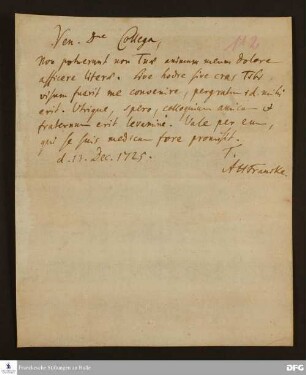 Ven. Dne Collega,
112
Non potuerunt non Tuae animum meum dolore
afficere literae. Sive hodie sive cras Tibi
visum fuerit me convenire, pergratum id mihi
erit. Utrique, spero, colloquium amicum et
fraternum erit levamini. Vale per eum,
qui se suis medicum fore promisit.
d. 13. Dec. 1725.
T.
AHFrancke.
Franckesche Stiftungen zu Halle
DFG